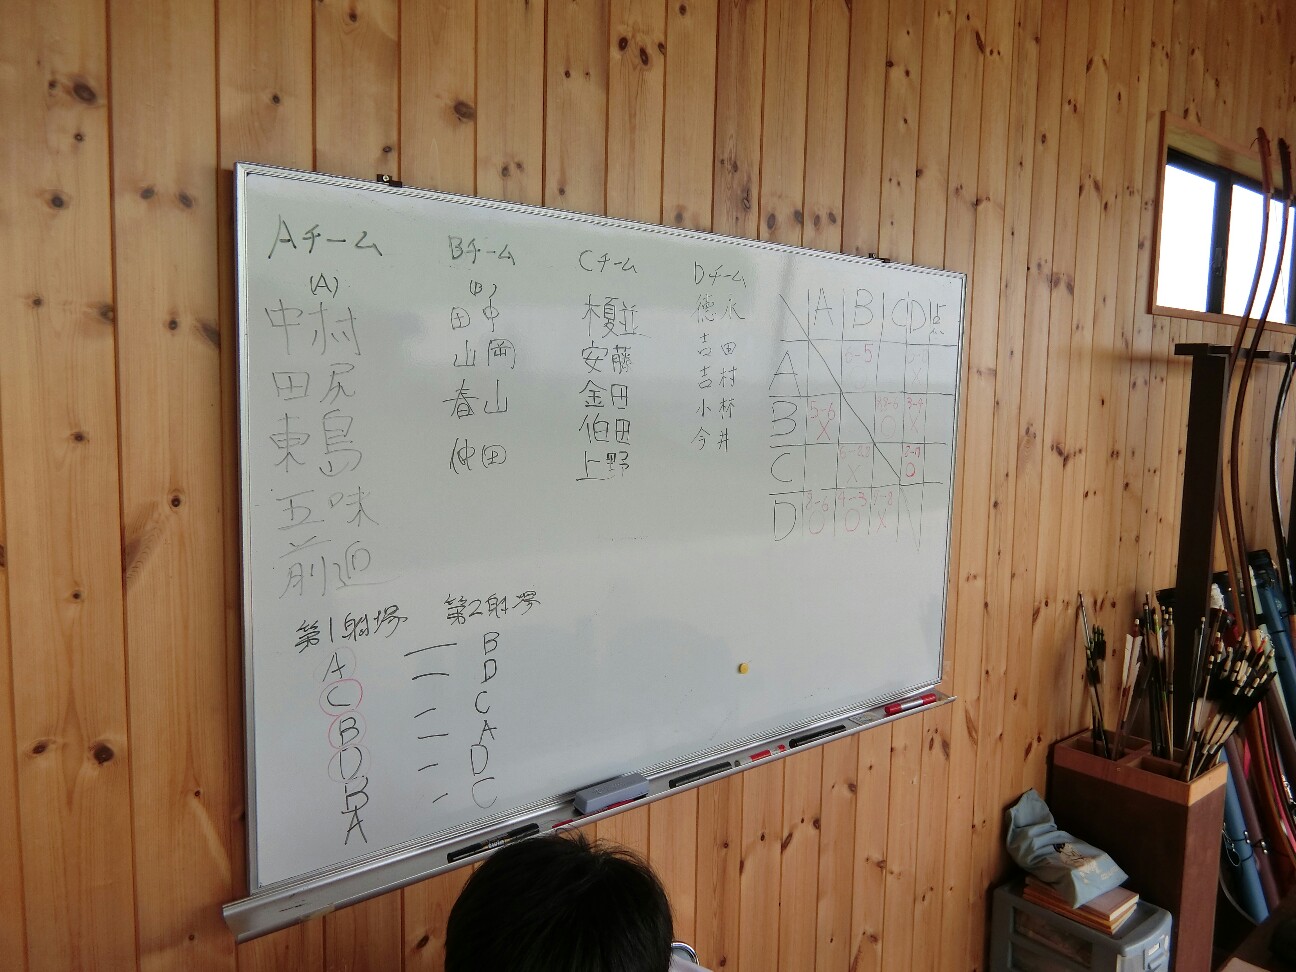 Aチーム
(A)
中村
田尻
東島
五味
前迫
Bチーム
(B)
田中
山岡
春山
仲田
Cチーム
榎並
安藤
金田
伯田
上野
Dチーム
徳永
吉田
吉村
小栁
今井
A B C D 点
A 6-5
B 5-6 X O 3-4 X
C X O
D O 4-3 O X
第1射場 第2射場
A — B
C — D
B — C
D — A
B — D
A — C